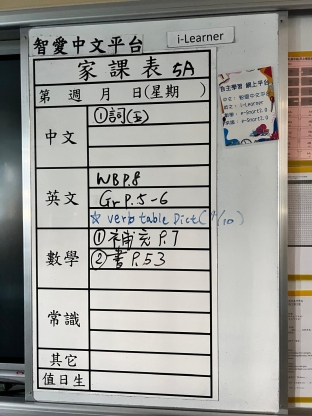 智愛中文平台
i-Learner
家課表 5A
第 週 月 日(星期 )
中文
①詞(五)
英文
WB P.8
Gr P.5-6
☆ verb table Dict(9/10)
數學
①補充 P.7
②書 P.53
常識
其它
值日生
自主學習 網上平台
中文: 智愛中文平台
英文: i-Learner